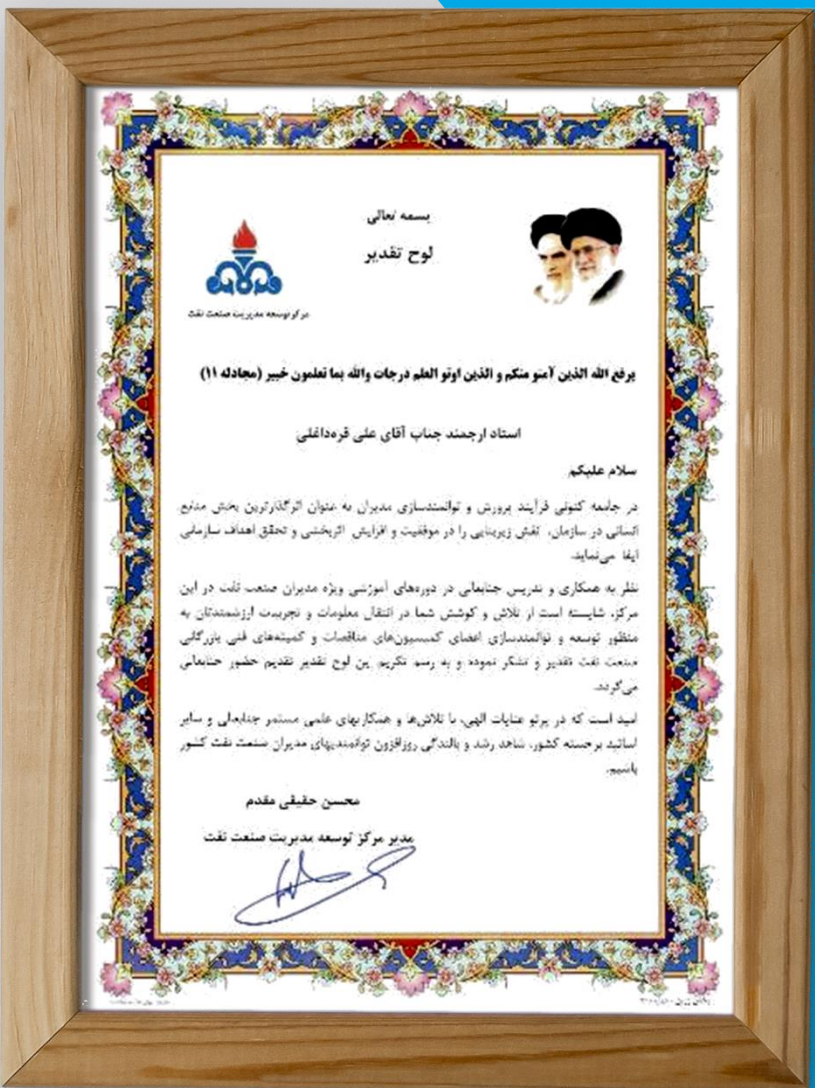 بسمه تعالی
لوح تقدیر
مرکز توسعه مدیریت صنعت نفت
یرفع الله الذین آمنو منکم و الذین اوتو العلم درجات والله بما تعلمون خبیر (مجادله ۱۱)
استاد ارجمند جناب آقای علی قره‌داغلی
سلام علیکم
در جامعه کنونی فرآیند پرورش و توانمندسازی مدیران به عنوان اثرگذارترین بخش منابع
انسانی در سازمان، نقش زیربنایی را در موفقیت و افزایش اثربخشی و تحقق اهداف سازمانی
ایفا می‌نماید.
نظر به همکاری و تدریس جنابعالی در دوره‌های آموزشی ویژه مدیران صنعت نفت در این
مرکز، شایسته است از تلاش و کوشش شما در انتقال معلومات و تجربیات ارزشمندتان به
منظور توسعه و توانمندسازی اعضای کمیسیون‌های مناقصات و کمیته‌های فنی بازرگانی
صنعت نفت تقدیر و تشکر نموده و به رسم تکریم این لوح تقدیر تقدیم حضور جنابعالی
می‌گردد.
امید است که در پرتو عنایات الهی، با تلاش‌ها و همکاریهای علمی مستمر جنابعالی و سایر
اساتید برجسته کشور، شاهد رشد و بالندگی روزافزون توانمندیهای مدیران صنعت نفت کشور
باشیم.
محسن حقیقی مقدم
مدیر مرکز توسعه مدیریت صنعت نفت